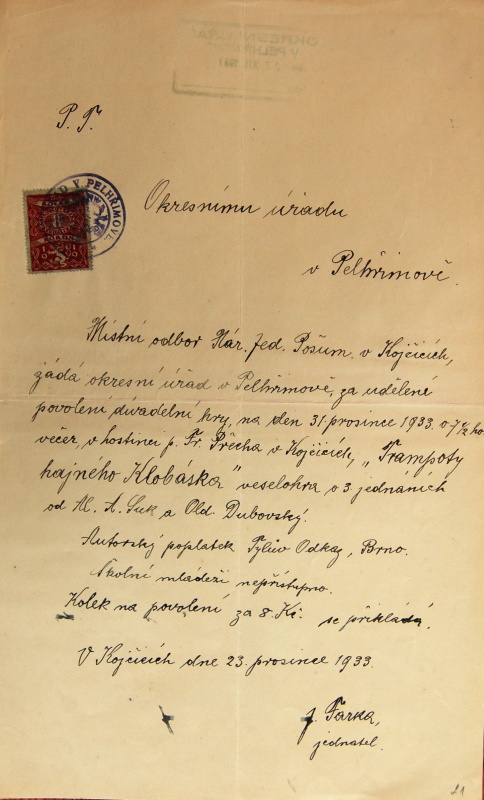 P. T.
Okresnímu úřadu
v Pelhřimově.
Místní odbor Nár. Jed. Pošum. v Kojčicích,
žádá okresní úřad v Pelhřimově, za udělení
povolení divadelní hry, na den 31. prosince 1933. o 7 1/2 ho
večer, v hostinci p. Fr. Přecha v Kojčicích, „Trampoty
hajného Klobáska" veselohra o 3. jednáních
od Al. A. Suk a Old. Dubovský.
Autorský poplatek Tylův Odkaz, Brno.
Školní mládeži nepřístupno.
Kolek na povolení za 8. Kč. se přikládá.
V Kojčicích dne 23. prosince 1933.
J. Farka,
jednatel.
21
V PELHŘIMOVĚ